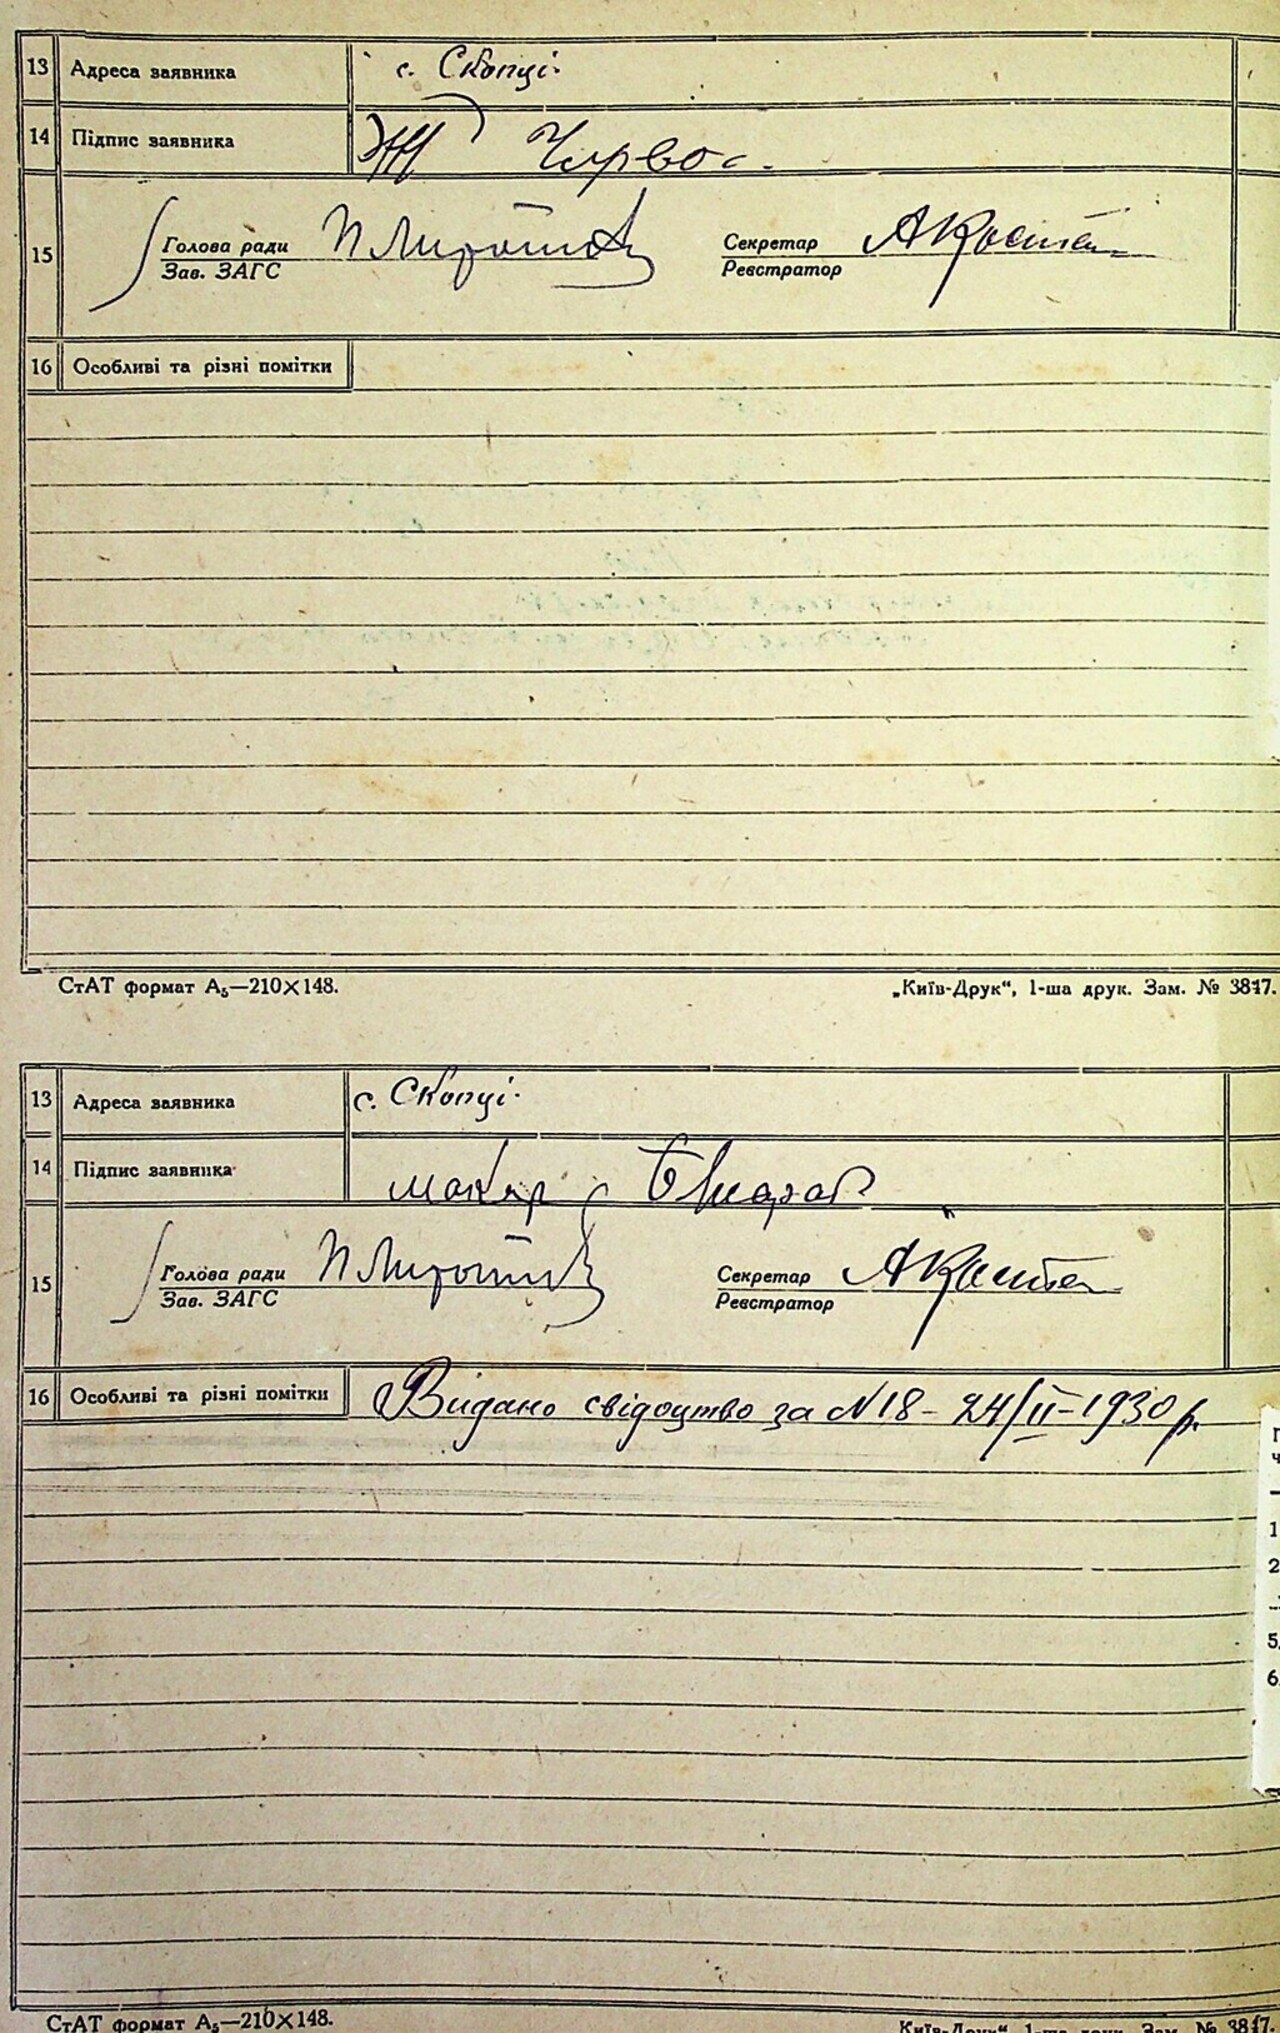 13 Адреса заявника с. Скопці.
14 Підпис заявника
15 Голова ради Секретар
Зав. ЗАГС Реєстратор
16 Особливі та різні помітки
СтАТ формат А₅—210×148. „Київ-Друк“, 1-ша друк. Зам. № 3817.
13 Адреса заявника с. Скопці.
14 Підпис заявника макар
15 Голова ради Секретар
Зав. ЗАГС Реєстратор
16 Особливі та різні помітки Видано свідоцтво за №18 - 24/II-1930 р.
1
2
5.
6.
СтАТ формат А₅—210×148. „Київ-Друк“, 1-ша друк. Зам. № 3817.